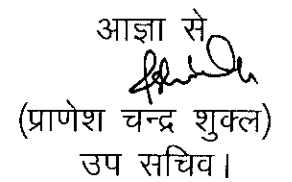 आज्ञा से
(प्राणेश चन्द्र शुक्ल)
उप सचिव।